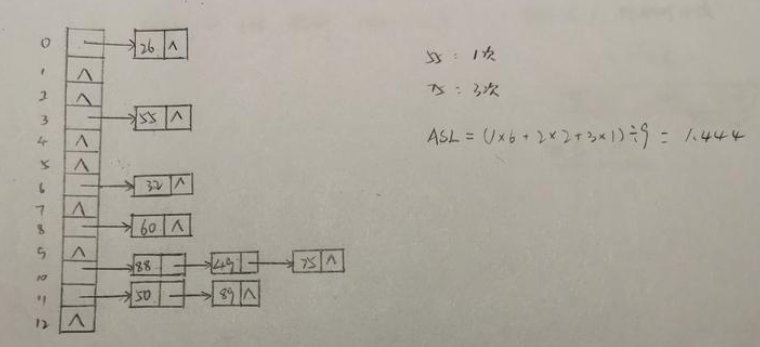 0 26 ∧
1 ∧
2 ∧
3 55 ∧
4 ∧
5 ∧
6 32 ∧
7 ∧
8 60 ∧
9 ∧
10 88 49 75 ∧
11 50 89 ∧
12 ∧
55 : 1次
75 : 3次
ASL = (1×6+2×2+3×1)÷9 = 1.444